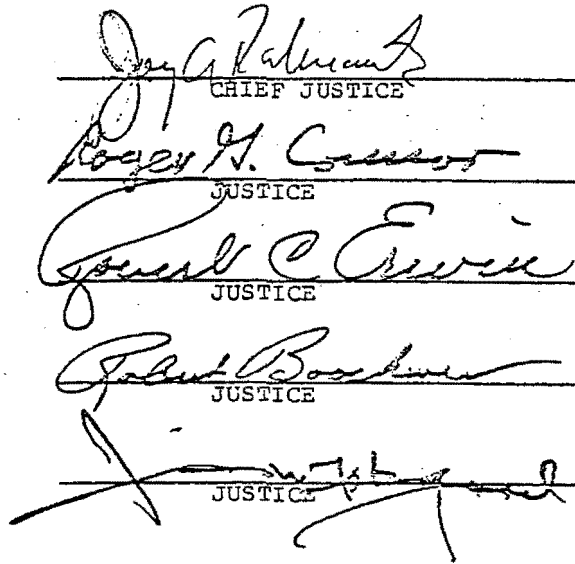 Jay A Rabinowitz
CHIEF JUSTICE
Roger G. Connor
JUSTICE
Robert C Erwin
JUSTICE
Robert Boochever
JUSTICE
JUSTICE